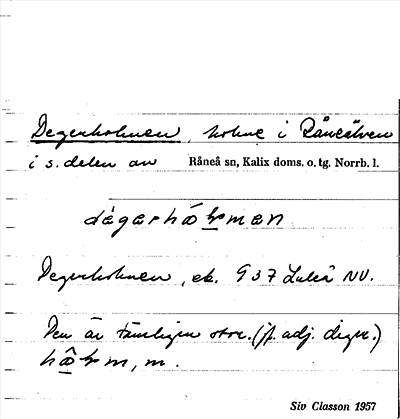 Degerholmen, holme i Råneälven
i s. delen av Råneå sn, Kalix doms. o. tg. Norrb. l.
Degerholmen, ek. 937 Luleå NV.
Den är tämligen stor. (jf. adj. diger.)
Siv Classon 1957